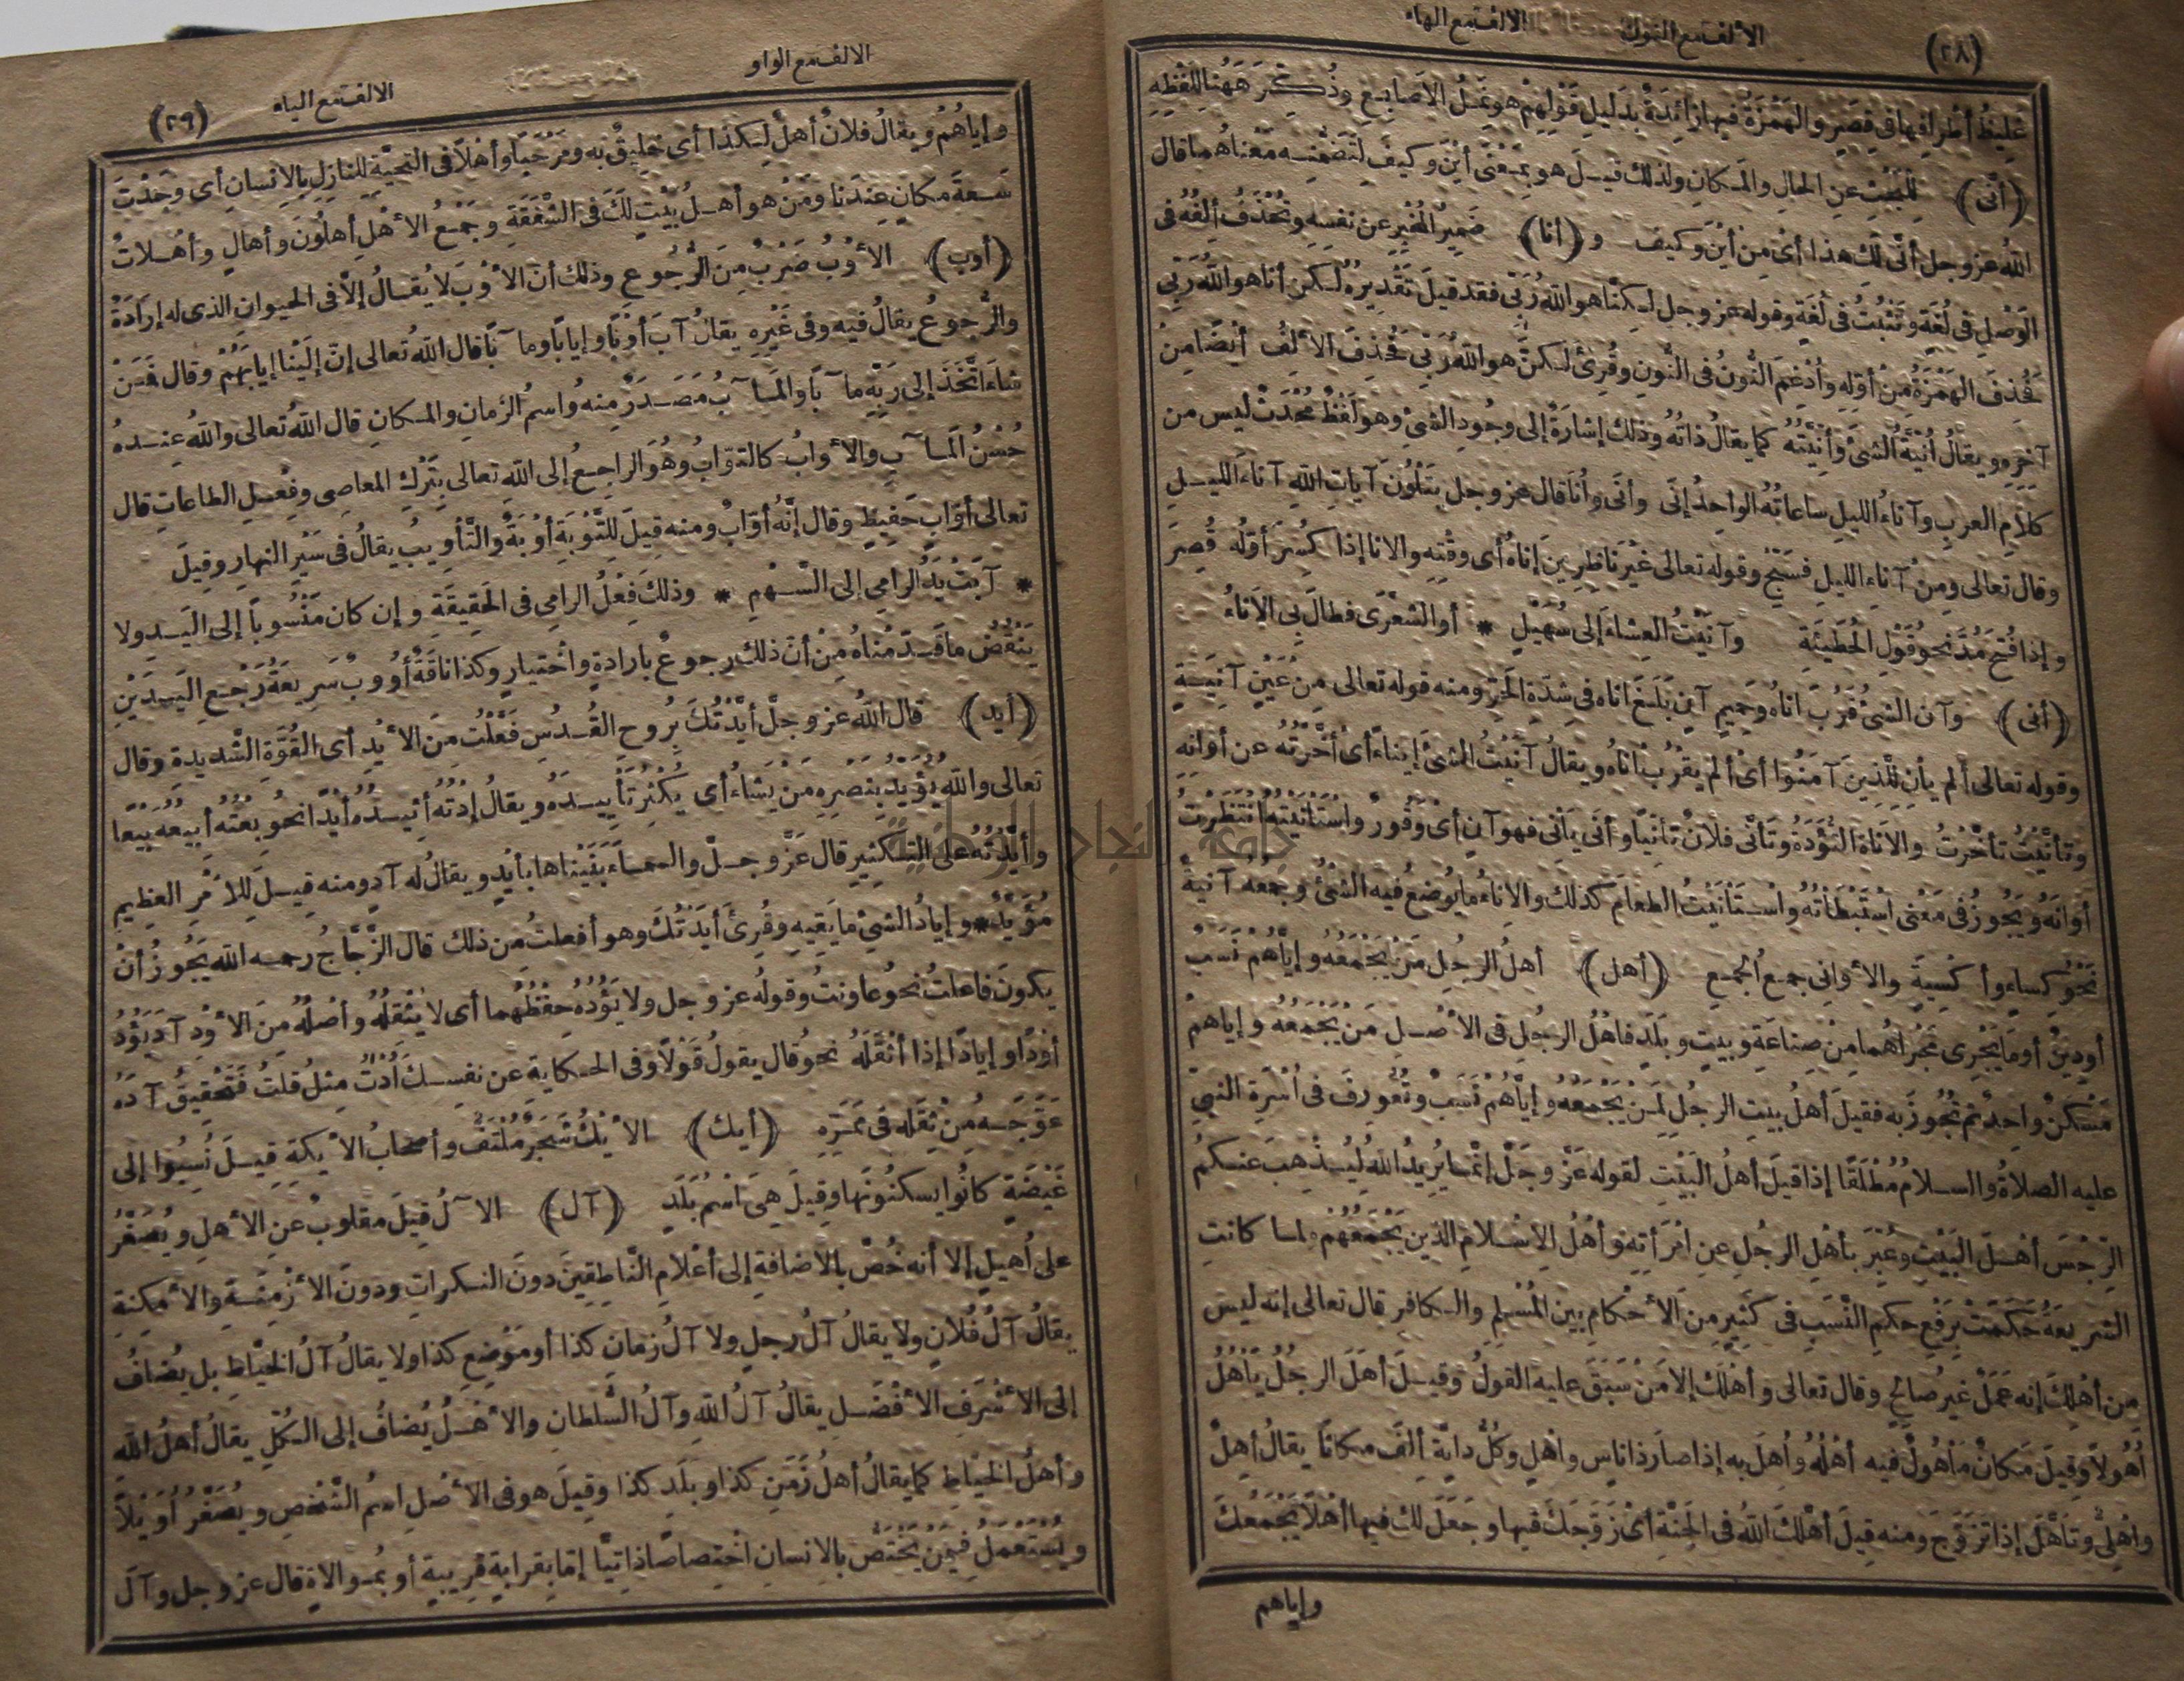 (٢٨)
الألف مع النون
الالف مع الهاء
غليظُ أطرافِها فى قِصَرٍ والهَمْزَةُ فيها زائدَةٌ بدَليلِ قَوْلِهِمْ هو نَمِلُ الأصابِعِ وذُكِرَ هَهُنا لِلَفْظِهِ
(أنَّى) للْبَحْثِ عنِ الحالِ والمَكانِ ولذلك قيلَ هو بمَعْنَى أيْنَ وكيفَ لتَضَمُّنِه مَعْناهُما قال
اللهُ عز وجل أنَّى لَكِ هذا أىْ مِنْ أيْنَ وكيفَ و (أنا) ضَمِيرُ المُخْبِرِ عن نفسِهِ وتُحْذَفُ ألِفُهُ فى
الوَصْلِ فى لُغَةٍ وتَثْبُتُ فى لُغَةٍ وقوله عز وجل لكنَّا هو اللهُ رَبِّى فقد قيلَ تَقْدِيرُهُ لكن أنا هو اللهُ رَبِّى
فحُذِفَ الهَمْزَةُ مِنْ أوَّلِهِ وأُدْغِمَ النُّونُ فى النُّونِ وقُرِئَ لكنَّ هو اللهُ رَبِّى فحُذِفَ الألِفُ أيْضًا مِنْ
آخِرِهِ ويقالُ أُنِّيَّةُ الشئِ وأَنِّيَّتُهُ كما يقالُ ذاتُهُ وذلك إشارَةٌ إلى وجُودِ الشئِ وهو لَفْظٌ مُحْدَثٌ ليس من
كلامِ العربِ وآناءُ الليلِ ساعاتُهُ الواحِدُ إنًى وأنًى وأنًا قال عز وجل يَتْلُونَ آياتِ اللهِ آناءَ الليلِ
وقال تعالى ومِنْ آناءِ الليلِ فسَبِّحْ وقوله تعالى غَيْرَ ناظِرِينَ إناهُ أى وقْتِهِ والانا إذا كُسِرَ أوَّلُه قُصِرَ
وإذا فُتِحَ مُدَّ نحوُ قَوْلِ الحُطَيْئَةِ وآنَيْتُ العِشاءَ إلى سُهَيْلٍ * أو الشعْرَى فطالَ بِى الأَناءُ
(أنى) وآن الشئُ قَرُبَ اناهُ وحَمِيمٍ آنٍ بَلَغَ اناه فى شِدّةِ الحَرِّ ومنه قوله تعالى مِنْ عَيْنٍ آنِيَةٍ
وقوله تعالى ألم يأنِ للَّذِينَ آمَنُوا أىْ ألم يقرُبْ اناه ويقالُ آنَيْتُ الشئَ إيناءً أىْ أخَّرْتُهُ عن أوانِهِ
وتأنَّيْتُ تأخَّرْتُ والأناةُ التُّؤَدَةُ وتَأنَّى فلانٌ تأنِّيًا وأنَى يأنِى فهو آنٍ أىْ وَقُورٌ واسْتَأنَيْتُهُ انْتَظَرْتُ
أوانَهُ ويَجُوزُ فى مَعْنَى اسْتَبْطَأْتُهُ واسْتَأنَيْتُ الطعامَ كذلك والاناءُ ما يُوضعُ فيه الشئُ وجمعُهُ آنيةٌ
نَحْوُ كِساءٍ وأكْسِيَةٍ والأَوانِى جمعُ الجمعِ (أهل) أهلُ الرجُلِ مَنْ يَجْمَعُهُ وإيَّاهُمْ نَسَبٌ
أو دِينٌ أو ما يَجْرِى مَجْراهُما مِنْ صِناعَةٍ وبيتٍ وبَلَدٍ فاهْلُ الرجُلِ فى الأصْلِ مَنْ يَجْمَعُهُ وإياهُمْ
مَسْكَنٌ واحِدٌ ثم تُجُوِّزَ به فقيلَ أهلُ بيتِ الرجلِ لِمَنْ يَجْمَعُهُ وإيَّاهُمْ نَسَبٌ وتُعُورِفَ فى أُسْرَةِ النبىِّ
عليه الصلاةُ والسلامُ مُطْلَقًا إذا قيلَ أهلُ البَيْتِ لقوله عَزَّ وجَلَّ إنَّما يُرِيدُ اللهُ لِيُذْهِبَ عنكمُ
الرِّجْسَ أهلَ البَيْتِ وعُبِّرَ بأهلِ الرجُلِ عنِ امْرَأتِهِ وأهْلُ الاِسْلامِ الذين يَجْمَعُهُمْ ولما كانتِ
الشريعَةُ حَكَمَتْ بِرَفْعِ حكمِ النَّسَبِ فى كَثِيرٍ مِنَ الأحْكامِ بين المُسْلِمِ والكافرِ قال تعالى إنه ليس
مِن أهْلِكَ إنه عَمَلٌ غيرُ صالحٍ وقال تعالى وأهْلَكَ إلا مَنْ سَبَقَ عليه القولُ وقيلَ أهَلَ الرجُلُ يَأْهُلُ
أُهُولاً وقِيلَ مَكانٌ مَأْهُولٌ فيه أهْلُهُ وأُهِلَ به إذا صارَ ذا ناسٍ وأهْلٍ وكُلُّ دابَّةٍ ألِفَ مكانًا يقالُ أهِلٌ
وأهْلِىٌّ وتأهَّلَ إذا تَزَوَّجَ ومنه قيلَ أهَّلَكَ اللهُ فى الجَنَّةِ أىْ زَوَّجَكَ فيها وجَعَلَ لك فيها أهْلاً يَجْمَعُكَ
وإياهم
الالف مع الواو
الالف مع الياء
(٢٩)
وإياهُمْ ويقالُ فلانٌ أهلٌ لِكذا أى خَلِيقٌ به ومَرْحَبًا وأهْلاً فى التحيَّةِ للنازِلِ بالانسانِ أى وجَدْتَ
سَعةَ مكانٍ عِندَنا ومَنْ هو أهلُ بيْتٍ لَكَ فى الشَّفَقَةِ وجَمْعُ الأهْلِ أهلُونَ وأهالٍ وأهْلاتٌ
(أوب) الأَوْبُ ضَرْبٌ مِنَ الرُّجُوعِ وذلك أنّ الأَوْبَ لا يُقالُ إلاَّ فى الحيوانِ الذى له إرادَةٌ
والرُّجوعُ يقالُ فيه وفى غَيْرِه يقالُ آبَ أوْبًا وإيابًا ومآبًا قال اللهُ تعالى إنَّ إلَيْنا إيابَهُمْ وقال فَمَنْ
شاءَ اتَّخَذَ إلى رَبِّهِ مآبًا والمآبُ مَصْدَرٌ منه واسمُ الزمانِ والمكانِ قال اللهُ تعالى واللهُ عِندهُ
حُسْنُ المآبِ والأوابُ كالتوّابِ وهُوَ الراجِعُ إلى اللهِ تعالى بِتَرْكِ المعاصِى وفِعْلِ الطاعاتِ قال
تعالى أوَّابٍ حَفِيظٍ وقال إنَّهُ أوّابٌ ومنه قيلَ لِلتَّوْبَةِ أوْبَةٌ والتَّأوِيبُ يقالُ فى سَيْرِ النهارِ وقيلَ
* آبَتْ يَدُ الرامِى إلى السَّهْمِ * وذلك فِعْلُ الرامِى فى الحَقِيقَةِ وإن كان مَنْسُوبًا إلى اليَدِ ولا
يَنْقُضُ ما قَدَّمْناهُ مِنْ أنّ ذلك رجوعٌ بارادةٍ واخْتيارٍ وكذا ناقَةٌ أوُوبٌ سَرِيعَةُ رَجْعِ اليَدَيْنِ
(أيد) قال اللهُ عز وجلَّ أيَّدْتُكَ بِرُوحِ القُدُسِ فَعَّلْتُ مِنَ الأيْدِ أى القُوَّةِ الشَّديدةِ وقال
تعالى واللهُ يُؤَيِّدُ بِنَصْرِهِ مَنْ يَشاءُ أى يُكْثِرُ تأييدَهُ ويقالُ إدْتُهُ أئِيدُهُ أيْدًا نحوُ بِعْتُه أبيعُهُ بَيْعًا
وأيَّدْتُهُ على التكثيرِ قال عَزَّ وجلَّ والسماءَ بَنَيْناها بأيْدٍ ويقالُ له آدٌ ومنه قيلَ لِلأمْرِ العظيمِ
مُؤَيَّدٌ * وإيادُ الشئِ ما يَقِيهِ وقُرِئَ أيَدْتُكَ وهو أفعلتُ مِن ذلك قال الزَّجَّاجُ رحمه الله يَجُوزُ أنْ
يكونَ فاعلتُ نحوُ عاونتُ وقولُه عز وجل ولا يَؤُدُهُ حِفْظُهُما أى لا يُثْقِلُهُ وأصْلُهُ مِنَ الأَوْدِ آدَ يَؤُدُ
أوْدًا وإيادًا إذا أثْقَلَهُ نحوُ قال يقولُ قَوْلاً وفى الحكايةِ عن نفسِكَ أُدْتُ مِثلُ قلتُ فَتَحْقِيقُ آدَهُ
عَوَّجَهُ مِنْ ثِقَلِه فى مَمَرِّهِ (أيك) الأيْكُ شَجَرٌ مُلْتَفٌّ وأصحابُ الأيكَةِ قيلَ نُسِبُوا إلى
غَيْضَةٍ كانُوا يسكنُونَها وقيلَ هىَ اسْمُ بَلَدٍ (آل) الآلُ قيلَ مقلوبٌ عنِ الأهلِ ويُصَغَّرُ
على أُهيلٍ إلا أنه خُصَّ بالاضافةِ إلى أعْلامِ النَّاطِقِينَ دونَ النكراتِ ودونَ الأزْمِنَةِ والأمْكِنةِ
يقالُ آلُ فُلانٍ ولا يقالُ آلُ رجلٍ ولا آلُ زمانِ كذا أو مَوْضِعِ كذا ولا يقالُ آلُ الخيَّاطِ بل يُضافُ
إلى الأشْرَفِ الأفْضَلِ يقالُ آلُ اللهِ وآلُ السُّلطانِ والأهْلُ يُضافُ إلى الكُلِّ يقالُ أهلُ الله
وأهلُ الخيَّاطِ كما يقالُ أهلُ زَمَنِ كذا وبلَدِ كذا وقيلَ هو فى الأصْلِ اسمُ الشَّخْصِ ويُصَغَّرُ أُوَيْلاً
ويُسْتَعْمَلُ فِيمَنْ يَخْتَصُّ بالانسانِ اخْتِصاصًا ذاتِيًّا إمَّا بقرابةٍ قرِيبةٍ أو بمُوالاةٍ قال عز وجل وآلَ
جامعة النجاح الوطنية